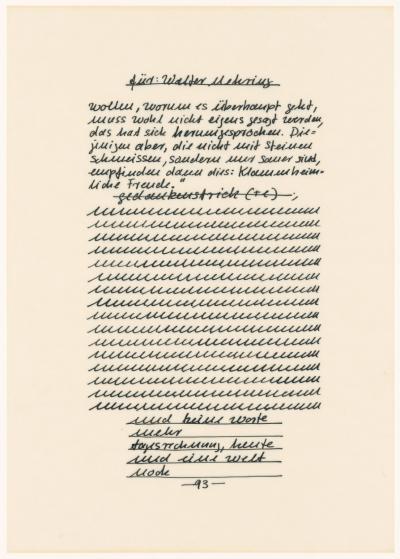 für: Walter Mehring
wollen, worum es überhaupt geht,
muss wohl nicht eigens gesagt werden,
das hat sich herumgesprochen. Die=
jenigen aber, die nicht mit Steinen
schmeissen, sondern nur sauer sind,
empfinden dann dies: Klammheim-
liche Freude."
gedankenstrich (+c) —,
und keine worte
mehr
tagesrechnung, heute
und eine welt
noch
—93—